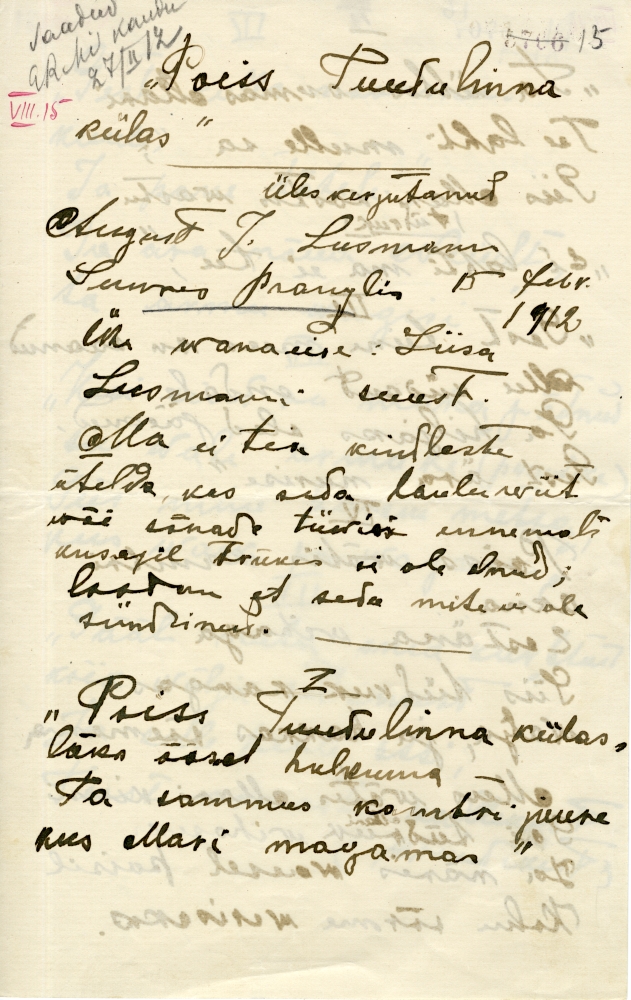 Saadud
ERMi kaudu
27/II 12
VIII.15
5706 15
„Poiss Tuudulinna
külas"
Üleskirjutanud
August J. Lusmann
Suures Pranglis 15 febr.
1912
Ühe wana eise: Liisa
Lusmanni suust.
Ma ei tea kindlaste
ütelda, kas seda laulu wiit
wõi sõnade ennemalt
kusagil trükis ei ole olnud;
loodan et seda mite ei ole
sündinud.
I
„Poiss Tuudulinna külas,
läks öösel hulkuma
Ta sammus kambri juure
kus Mari magamas"